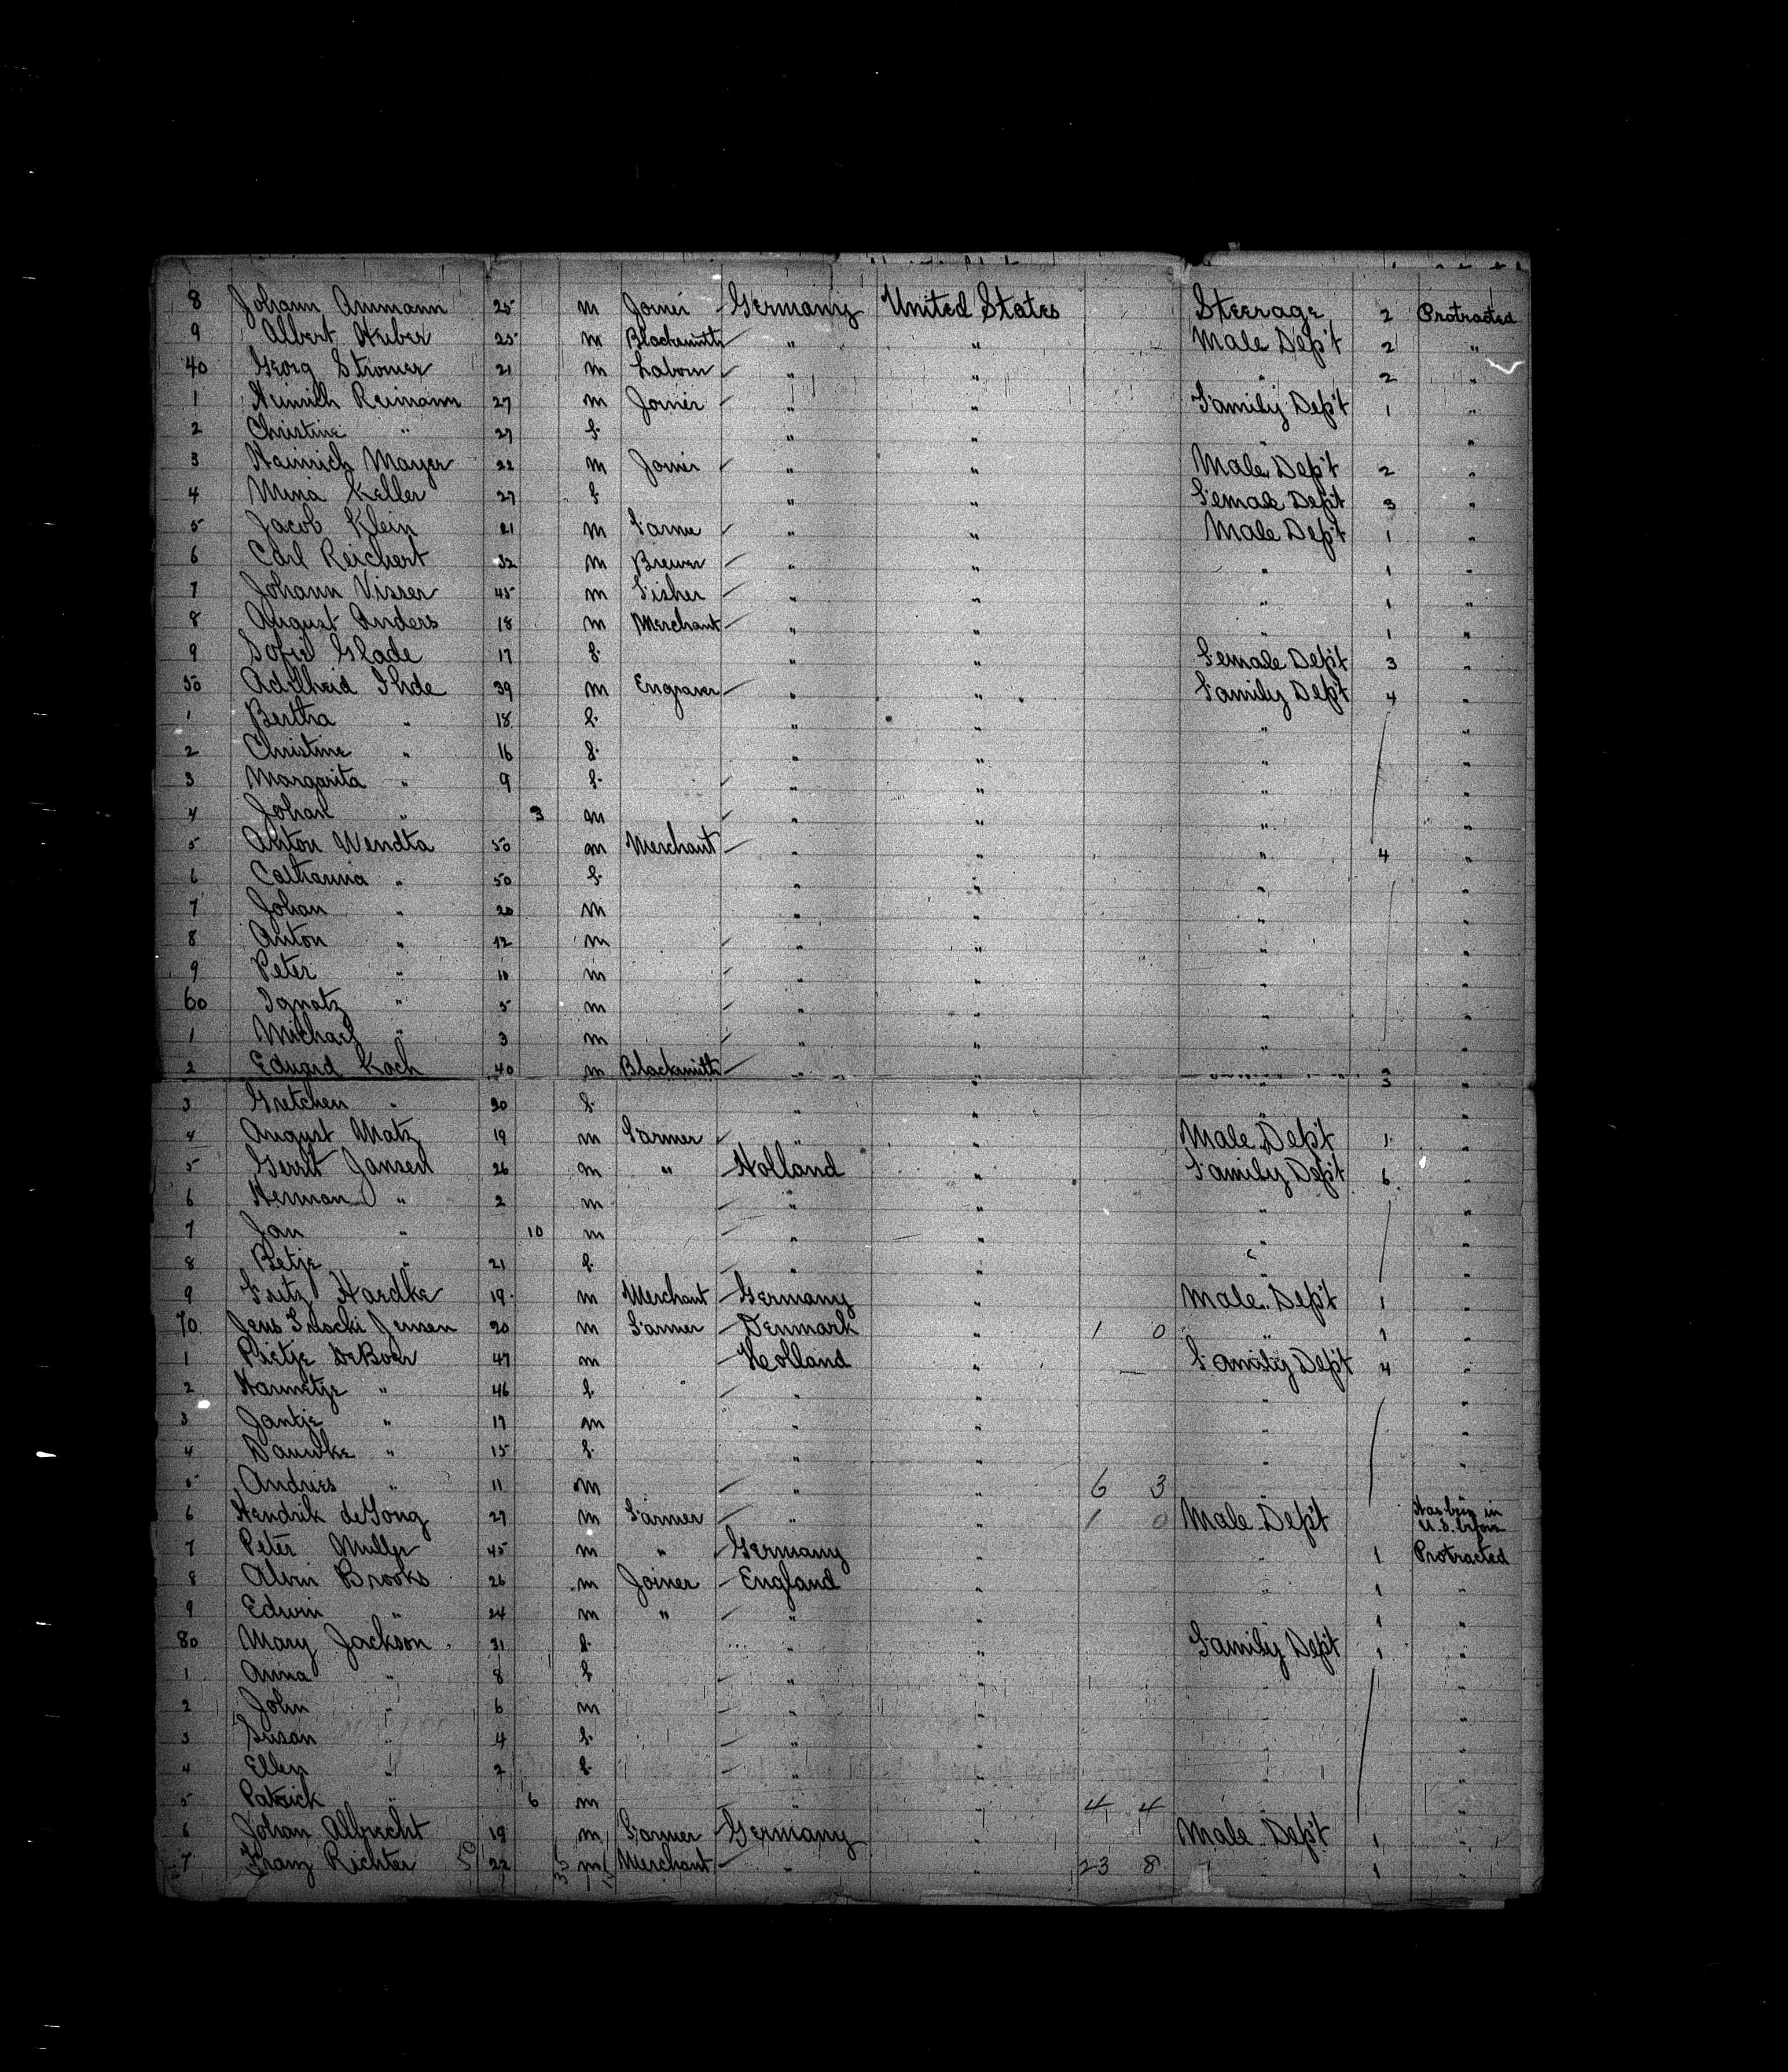 8 Johann Ammann 25 m Joiner Germany United States Steerage 2 Protracted
9 Albert Huber 25 m Blacksmith " " Male Dep't 2 "
40 Georg Stromer 21 m Laborer " " " 2 "
1 Heinrich Reimann 27 m Joiner " " Family Dep't 1 "
2 Christine " 27 f. " " " "
3 Heinrich Mayer 22 m Joiner " " Male Dep't 2 "
4 Mina Keller 27 f " " Female Dep't 3 "
5 Jacob Klein 21 m Farmer " " Male Dep't 1 "
6 Carl Reichert 32 m Brewer " " " 1 "
7 Johann Visser 45 m Fisher " " " 1 "
8 August Anders 18 m Merchant " " " 1 "
9 Sofie Glade 17 f. " " Female Dep't 3 "
50 Adelheid Ihde 39 m Engraver " " Family Dep't 4 "
1 Bertha " 18 f. " " " "
2 Christine " 16 f. " " " "
3 Margarita " 9 f. " " " "
4 Johan " 3 m " " " "
5 Anton Wendta 50 m Merchant " " " 4 "
6 Catharina " 50 f. " " " "
7 Johan " 20 m " " " "
8 Anton " 12 m " " " "
9 Peter " 10 m " " " "
60 Ignatz " 5 m " " " "
1 Michael " 3 m " " " "
2 Eduard Koch 40 m Blacksmith " " 3 "
3 Gretchen " 20 f. " " " "
4 August Matz 19 m Farmer " " Male Dep't 1 "
5 Gerrit Jansen 26 m " Holland " Family Dep't 6 "
6 Herman " 2 m " " " "
7 Jan " 10 m " " " "
8 Betje " 21 f. " " " "
9 Fritz Hardke 19 m Merchant Germany " Male Dep't 1 "
70 Jens Jensen 20 m Farmer Denmark " 1 0 " 1 "
1 Pietje DeBoer 47 m Holland " Family Dep't 4 "
2 Harmetje " 46 f. " " " "
3 Jantje " 17 m " " " "
4 " 15 f. " " " "
5 Andries " 11 m " " 6 3 "
6 Hendrik deJong 27 m Farmer " " 1 0 Male Dep't Has been in U.S. before
7 Peter Muller 45 m " Germany " " 1 Protracted
8 Alvin Brooks 26 m Joiner England " " 1 "
9 Edwin " 24 m " " " 1 "
80 Mary Jackson 31 f. " " Family Dep't 1 "
1 Anna " 8 f " " " "
2 John " 6 m " " " "
3 Susan " 4 f. " " " "
4 Ellen " 2 f. " " " "
5 Patrick " 6 m " " 4 4 " "
6 Johan Albrecht 19 m Farmer Germany " Male Dep't 1 "
7 Franz Richter 22 m Merchant " " 23 8 " 1 "